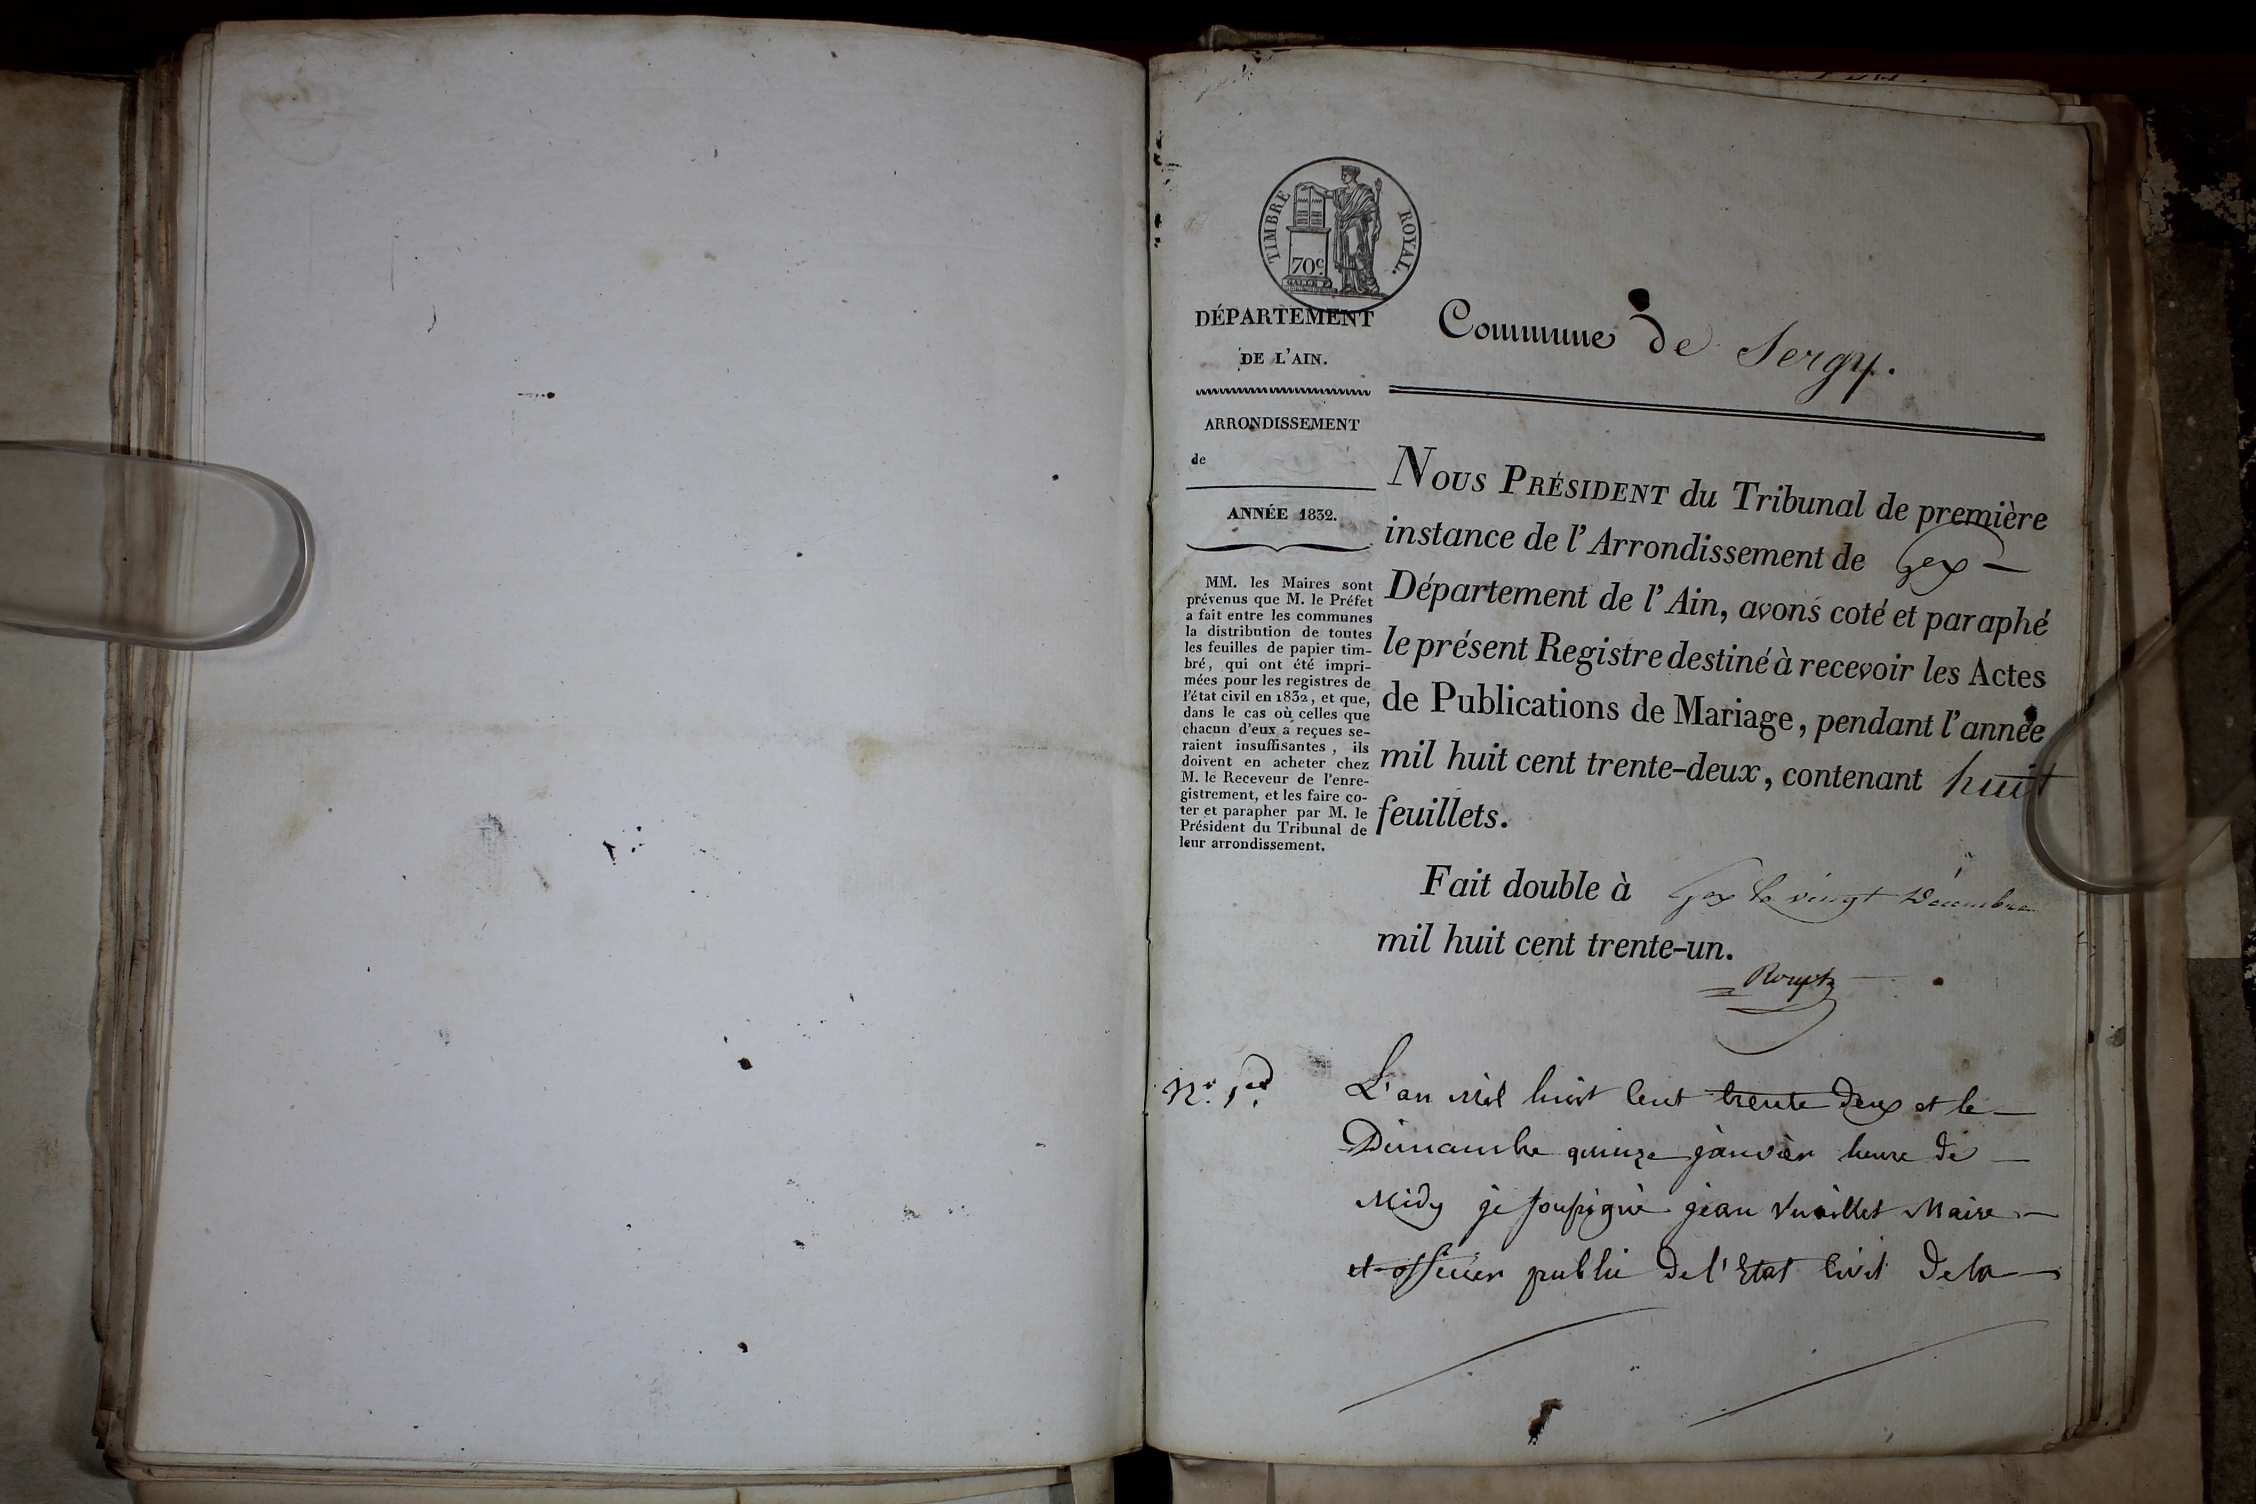 TIMBRE ROYAL.
70c
DÉPARTEMENT
DE L'AIN.
ARRONDISSEMENT
de
ANNÉE 1832.
MM. les Maires sont
prévenus que M. le Préfet
a fait entre les communes
la distribution de toutes
les feuilles de papier tim-
bré, qui ont été impri-
mées pour les registres de
l'état civil en 1832, et que,
dans le cas où celles que
chacun d'eux a reçues se-
raient insuffisantes, ils
doivent en acheter chez
M. le Receveur de l'enre-
gistrement, et les faire co-
ter et parapher par M. le
Président du Tribunal de
leur arrondissement.
Commune de Sergy.
NOUS PRÉSIDENT du Tribunal de première
instance de l'Arrondissement de Gex
Département de l'Ain, avons coté et paraphé
le présent Registre destiné à recevoir les Actes
de Publications de Mariage, pendant l'année
mil huit cent trente-deux, contenant huit
feuillets.
Fait double à Gex le vingt Décembre
mil huit cent trente-un.
N° 1er
L'an mil huit cent trente deux et le
Dimanche quinze janvier heure de
Midy je soussigné jean Vuaillet Maire
et officier public de l'Etat Civil de la